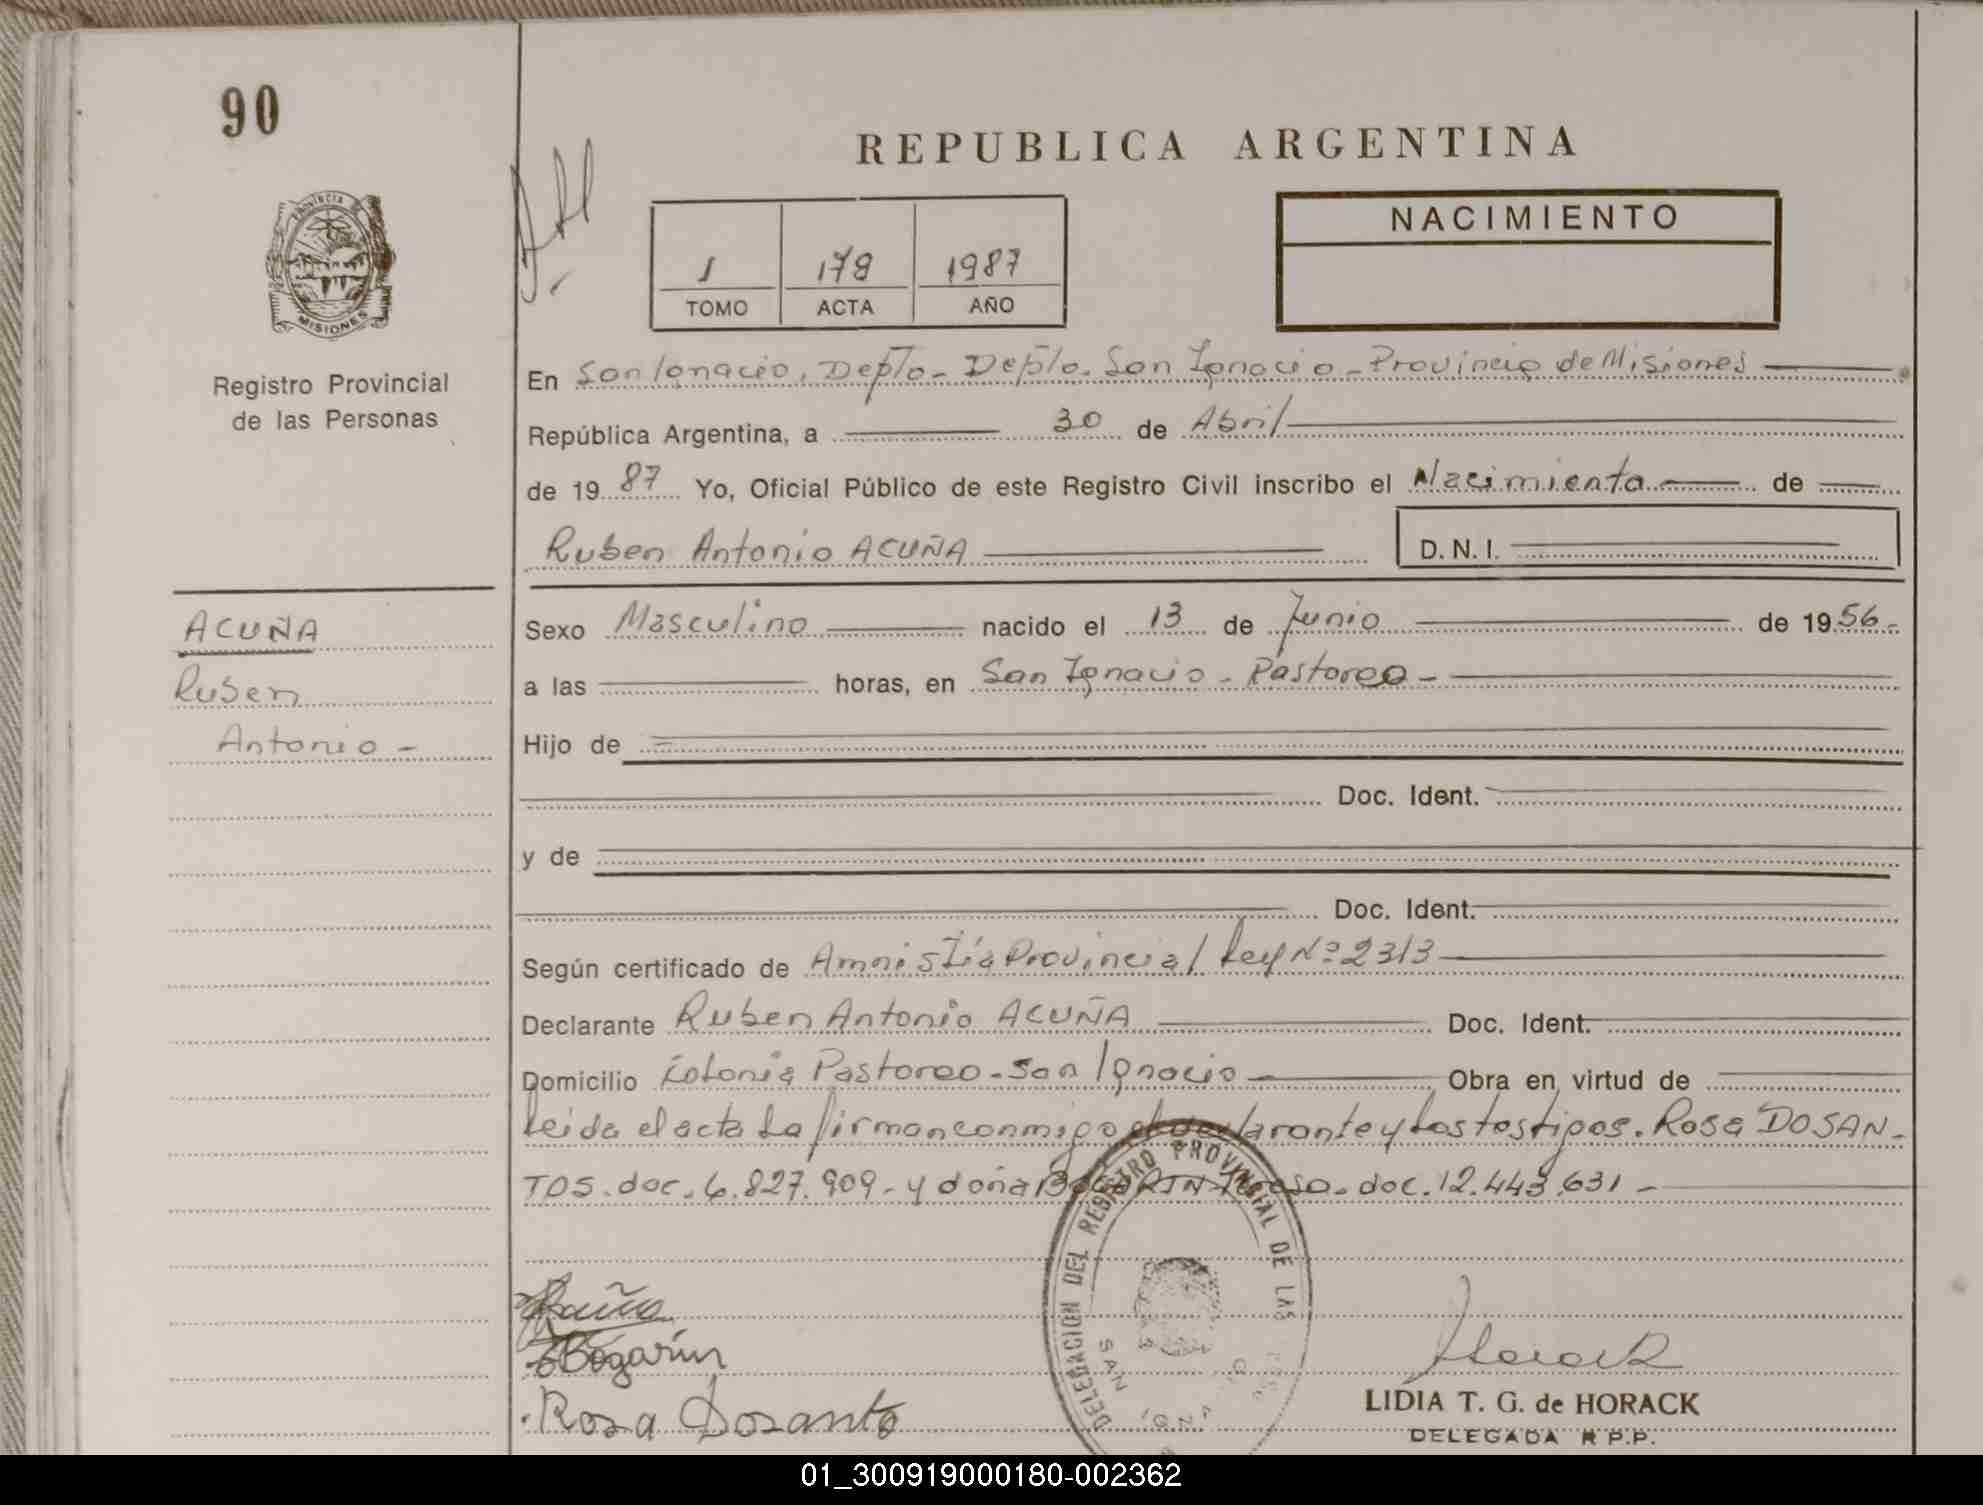 90
REPUBLICA ARGENTINA
PROVINCIA DE
MISIONES
Registro Provincial
de las Personas
1 178 1987
TOMO ACTA AÑO
NACIMIENTO
En San Ignacio, Depto - Depto. San Ignacio - Provincia de Misiones
República Argentina, a 30 de Abril
de 1987 Yo, Oficial Público de este Registro Civil inscribo el Nacimiento de
Ruben Antonio ACUÑA D. N. I.
ACUÑA
Ruben
Antonio -
Sexo Masculino nacido el 13 de Junio de 1956-
a las horas, en San Ignacio - Pastoreo -
Hijo de
Doc. Ident.
y de
Doc. Ident.
Según certificado de Amnistía Provincial Ley Nº 2313
Declarante Ruben Antonio ACUÑA Doc. Ident.
Domicilio Colonia Pastoreo - San Ignacio Obra en virtud de
leida el acta La firman conmigo el declarante y Los testigos. Rosa DOSAN-
TOS. doc. 6.827.909 - y doña BOGARIN doc. 12.443.631 -
DELEGACION DEL REGISTRO PROVINCIAL DE LAS
SAN
Acuña
Bogarín
Rosa Dosanto
Horack
LIDIA T. G. de HORACK
DELEGADA R P.P.
01_300919000180-002362